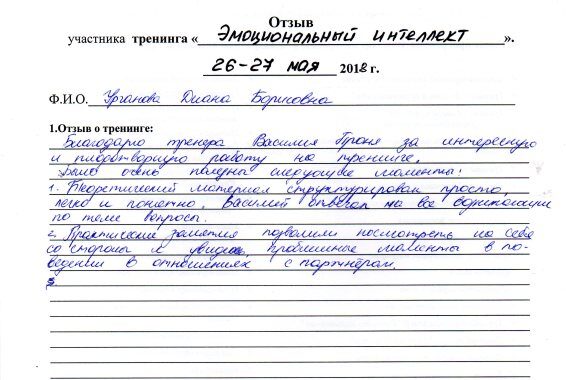 Отзыв
участника тренинга « Эмоциональный интеллект ».
26-27 мая 2018 г.
Ф.И.О. Урганова Диана Борисовна
1.Отзыв о тренинге:
Благодарю тренера Василия за интересную
и плодотворную работу на тренинге.
Было очень полезны следующие моменты:
1. Теоретический материал структурирован просто,
легко и понятно. Василий отвечал на все возникающие
по теме вопросы.
2. Практические занятия позволили посмотреть на себя
со стороны и увидеть проблемные моменты в по-
ведении в отношениях с партнёром.
3.